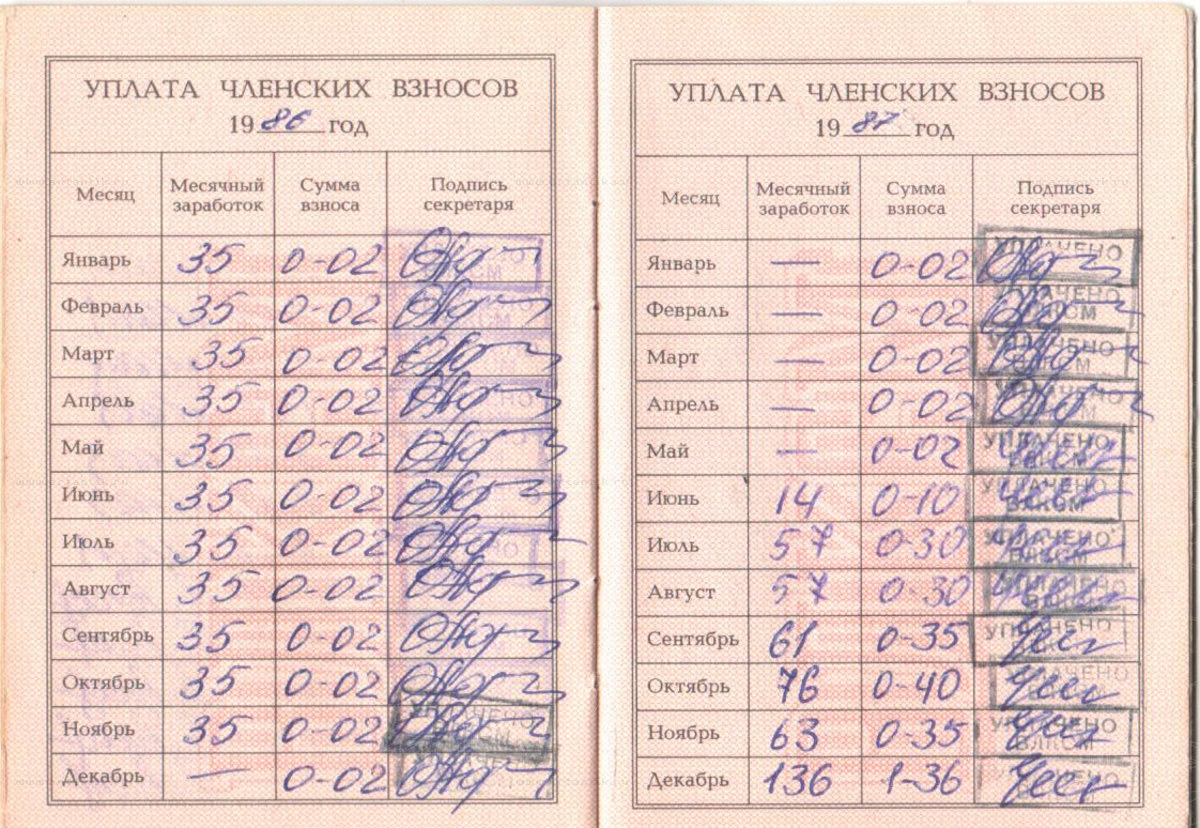 УПЛАТА ЧЛЕНСКИХ ВЗНОСОВ
1986 год
Месяц Месячный заработок Сумма взноса Подпись секретаря
Январь 35 0-02
Февраль 35 0-02
Март 35 0-02
Апрель 35 0-02
Май 35 0-02
Июнь 35 0-02
Июль 35 0-02
Август 35 0-02
Сентябрь 35 0-02
Октябрь 35 0-02
Ноябрь 35 0-02 УПЛАЧЕНО
Декабрь — 0-02 УПЛАЧЕНО
УПЛАТА ЧЛЕНСКИХ ВЗНОСОВ
1987 год
Месяц Месячный заработок Сумма взноса Подпись секретаря
Январь — 0-02 УПЛАЧЕНО
Февраль — 0-02 УПЛАЧЕНО ВЛКСМ
Март — 0-02 УПЛАЧЕНО ВЛКСМ
Апрель — 0-02 УПЛАЧЕНО
Май — 0-02 УПЛАЧЕНО ВЛКСМ
Июнь 14 0-10 УПЛАЧЕНО ВЛКСМ
Июль 57 0-30 УПЛАЧЕНО ВЛКСМ
Август 57 0-30 УПЛАЧЕНО
Сентябрь 61 0-35 УПЛАЧЕНО
Октябрь 76 0-40 УПЛАЧЕНО
Ноябрь 63 0-35 УПЛАЧЕНО ВЛКСМ
Декабрь 136 1-36